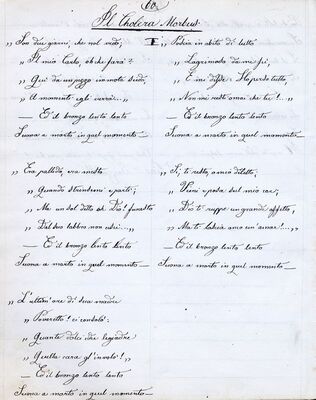 60.
Il Cholera Morbus
I
„ Son due giorni, che nol vedo;
„ Il mio Carlo, oh che farà?
„ Qui da un pezzo in notte siedo,
„ A momenti egli verrà... „
— Ed il bronzo lento lento
Suona a morto in quel momento —
„ Era pallido, era mesto
„ Quando strinsemi e partì;
„ Ma un sol detto oh Dio! funesto
„ Dal suo labbro non udii... „
— Ed il bronzo lento lento
Suona a morto in quel momento —
„ L'ultim'ore di sua madre
„ Poveretto! ei condolò;
„ Quante dolci idee leggiadre
„ Quella cara gl'involò! „
— Ed il bronzo lento lento
Suona a morto in quel momento —
„ Pedina in abito di lutto
„ Lagrimada mi
„ E mi disse: Ho perso tutto,
„ Non mi resti ama che te!... „
— Ed il bronzo lento lento
Suona a morto in quel momento —
„ Sì, ti resto, o mio diletto;
„ Vieni e posa sul mio cor;
„ Dio ti ruppe un grande affetto,
„ Ma ti lascia ancor un amor!... „
— Ed il bronzo lento lento
Suona a morto in quel momento —